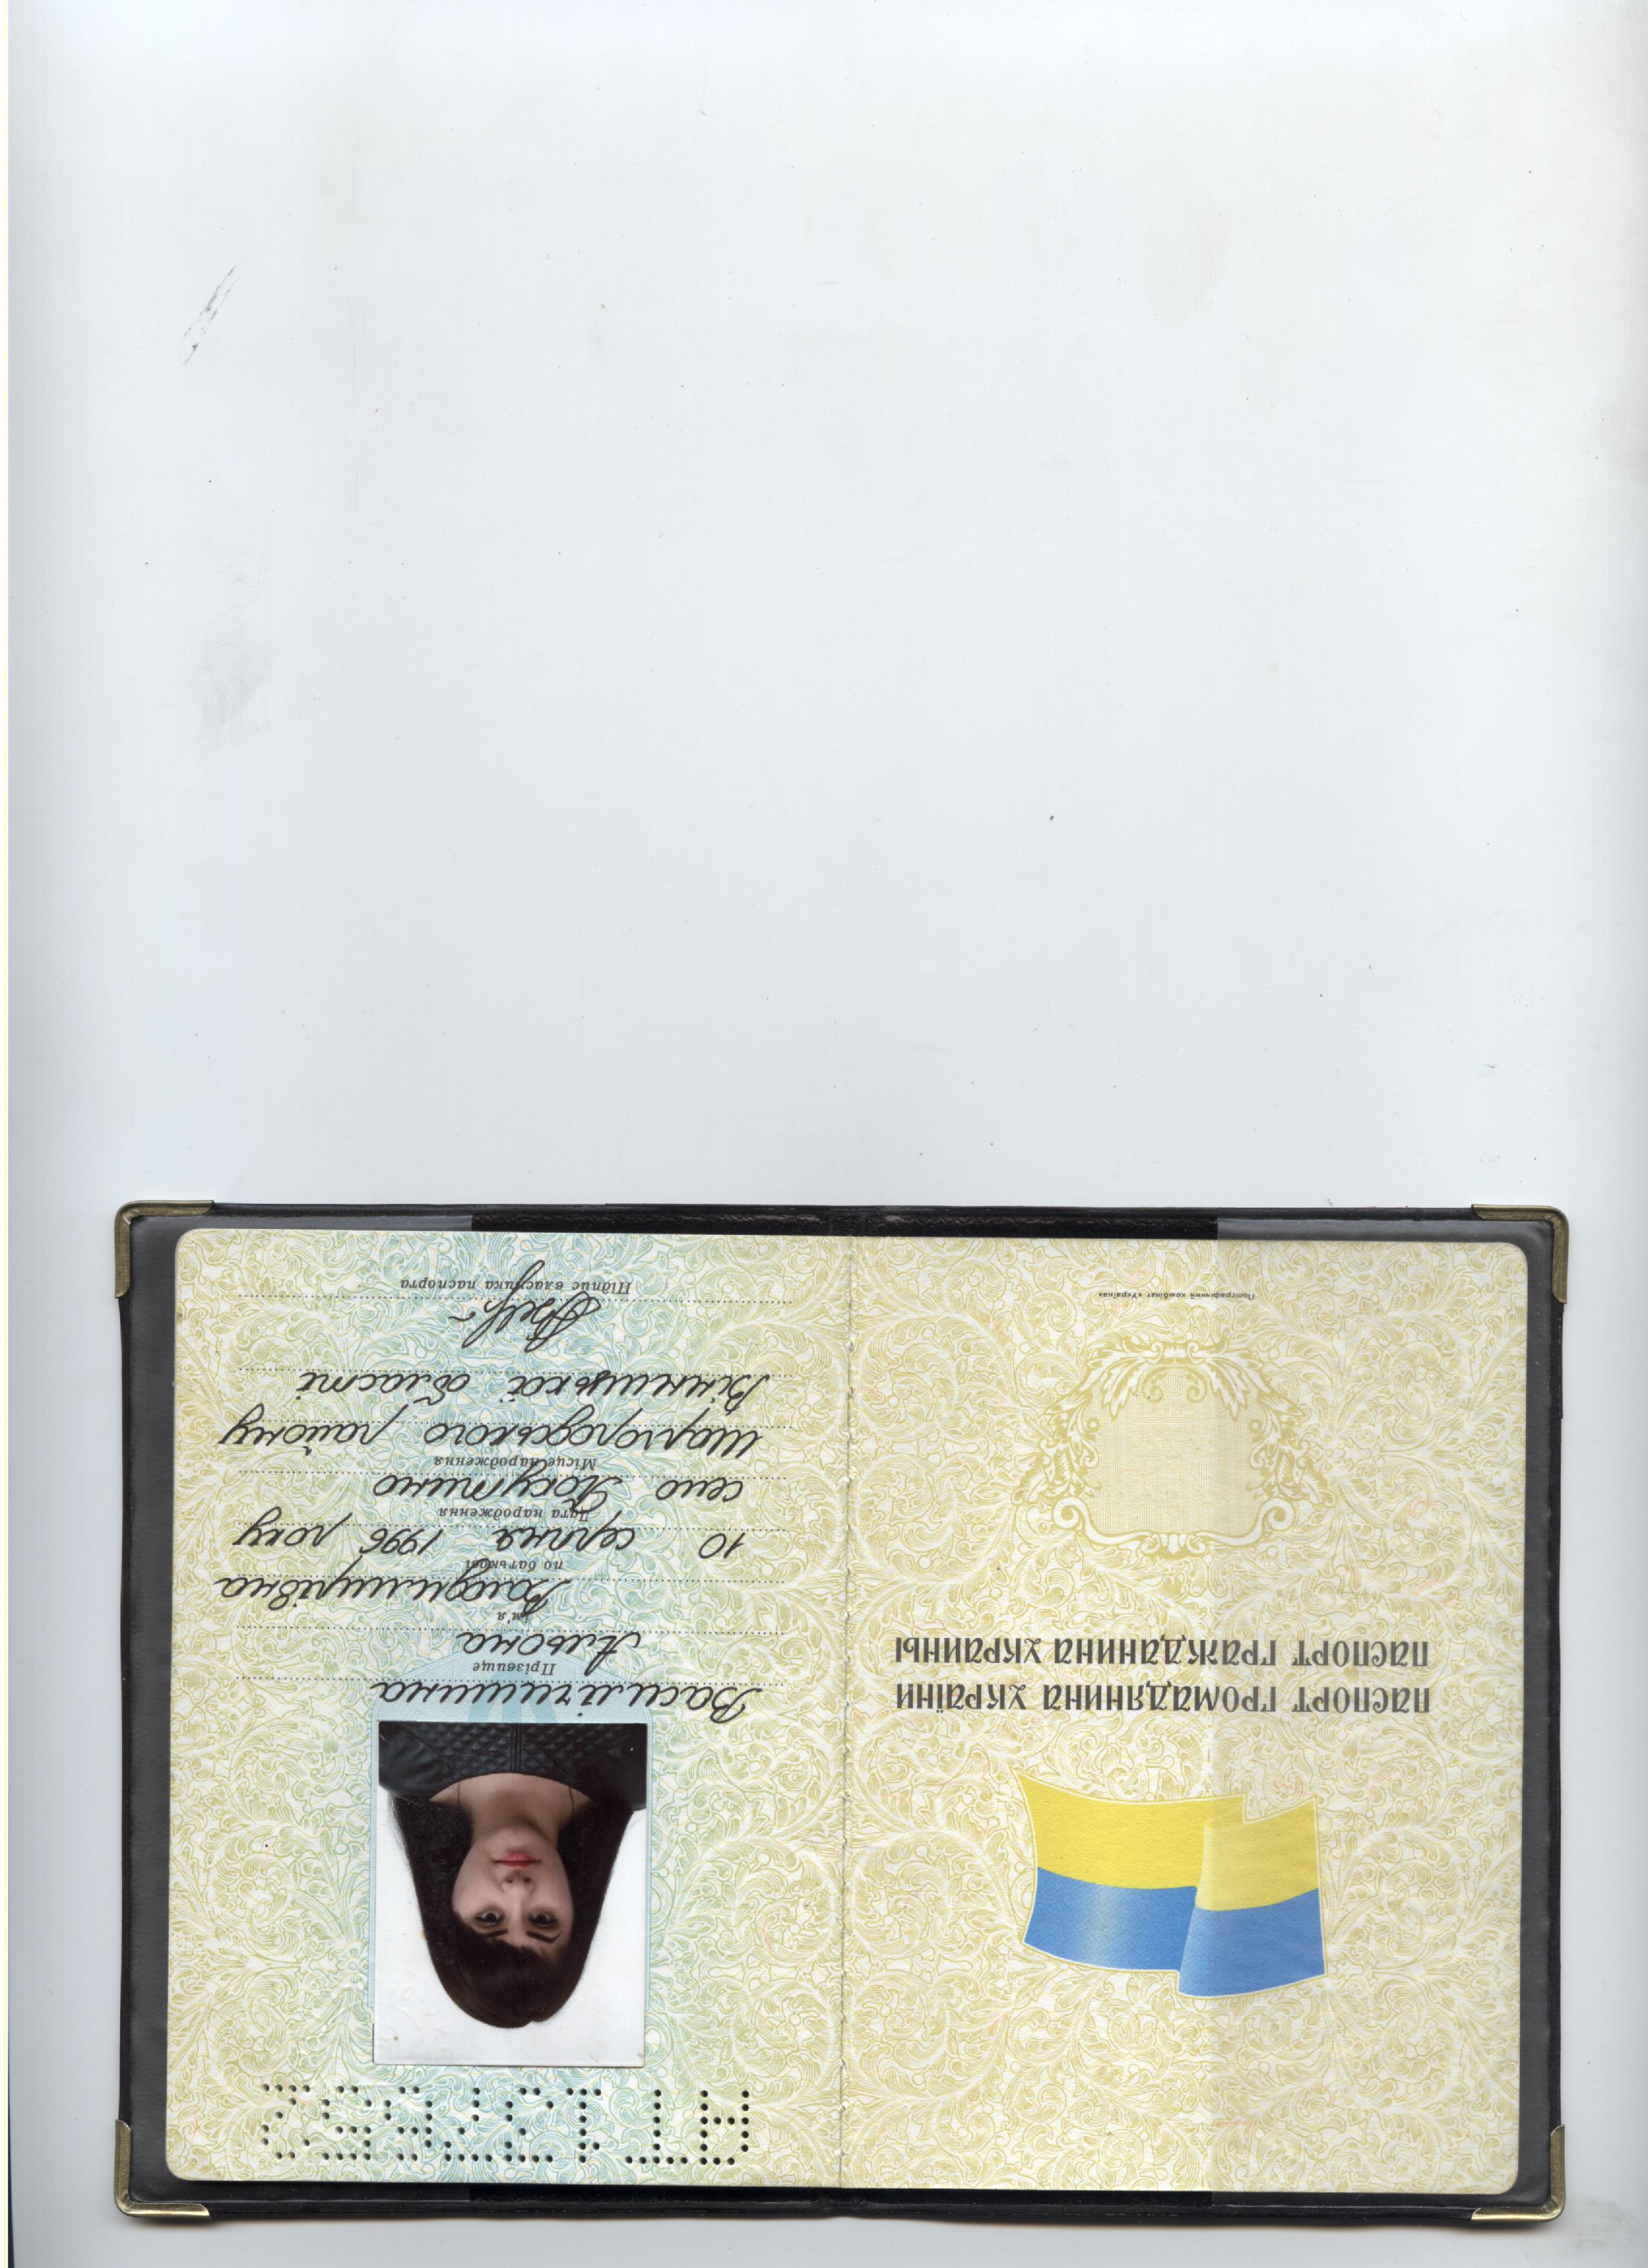 ПАСПОРТ ГРОМАДЯНИНА УКРАЇНИ
ПАСПОРТ ГРАЖДАНИНА УКРАИНЫ
Поліграфічний комбінат «Україна»
Прізвище
Альона
ім'я
Володимирівна
по батькові
10 серпня 1996 року
Дата народження
село Покутино
Місце народження
Шаргородського району
Вінницької області
Підпис власника паспорта